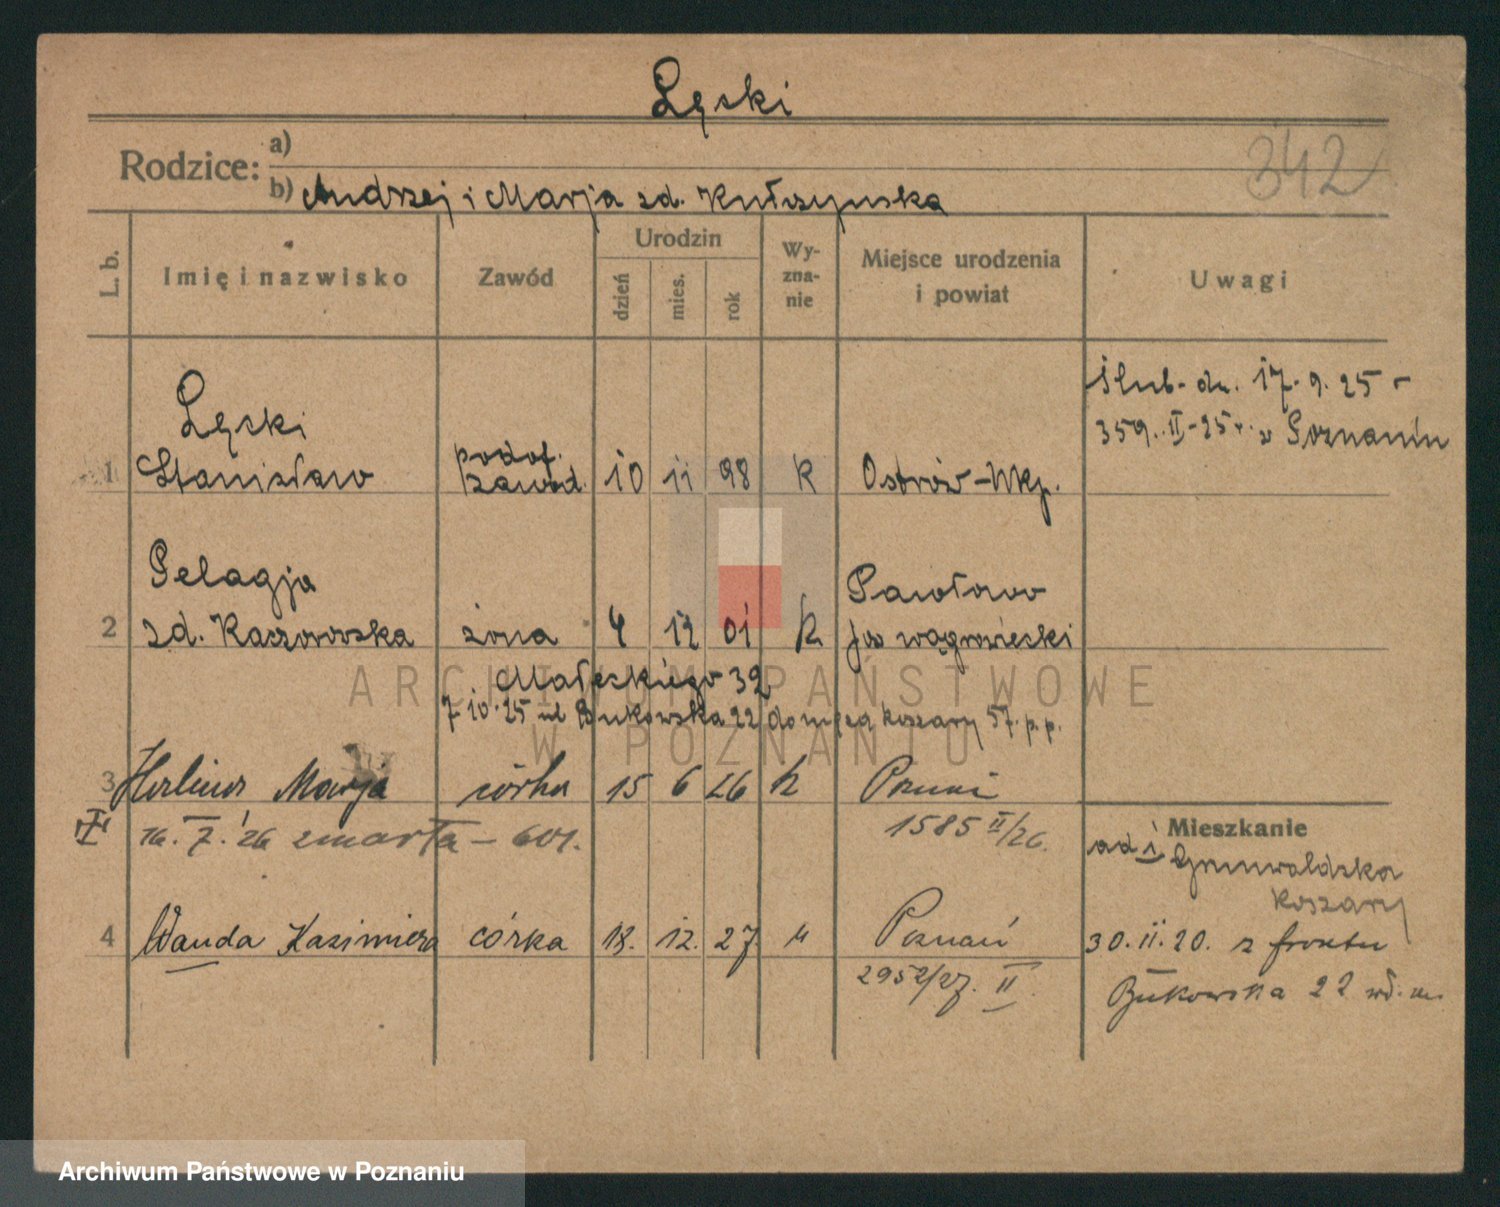 Lęski
Rodzice: a)
b) Andrzej i Marja zd. Kułczyńska
342
L. b.
Imię i nazwisko
Zawód
Urodzin
dzień
mies.
rok
Wy-
zna-
nie
Miejsce urodzenia
i powiat
Uwagi
Ślub dn. 17. 9. 25 r
359. II-25 r. w Poznaniu
Lęski
1 Stanisław podof. zawod. 10 11 98 k Ostrów-Wkp.
Pelagja
2 zd. Kaczorowska żona 4 12 01 k Pawłowo
pow wągrowiecki
Małeckiego 32
7 10. 25 ul Bukowska 22 koszary 57. p. p.
3 Marja córka 15 6 26 k Poznań
16. 7. 26 zmarła - 601.
1585 II/26.
Mieszkanie
ad 1 Grunwaldzka
koszary
4 Wanda Kazimiera córka 18. 12. 27. Poznań
2952/27. II
30. 11. 20. z frontu
Bukowska 22
ARCHIWUM PAŃSTWOWE
W POZNANIU
Archiwum Państwowe w Poznaniu